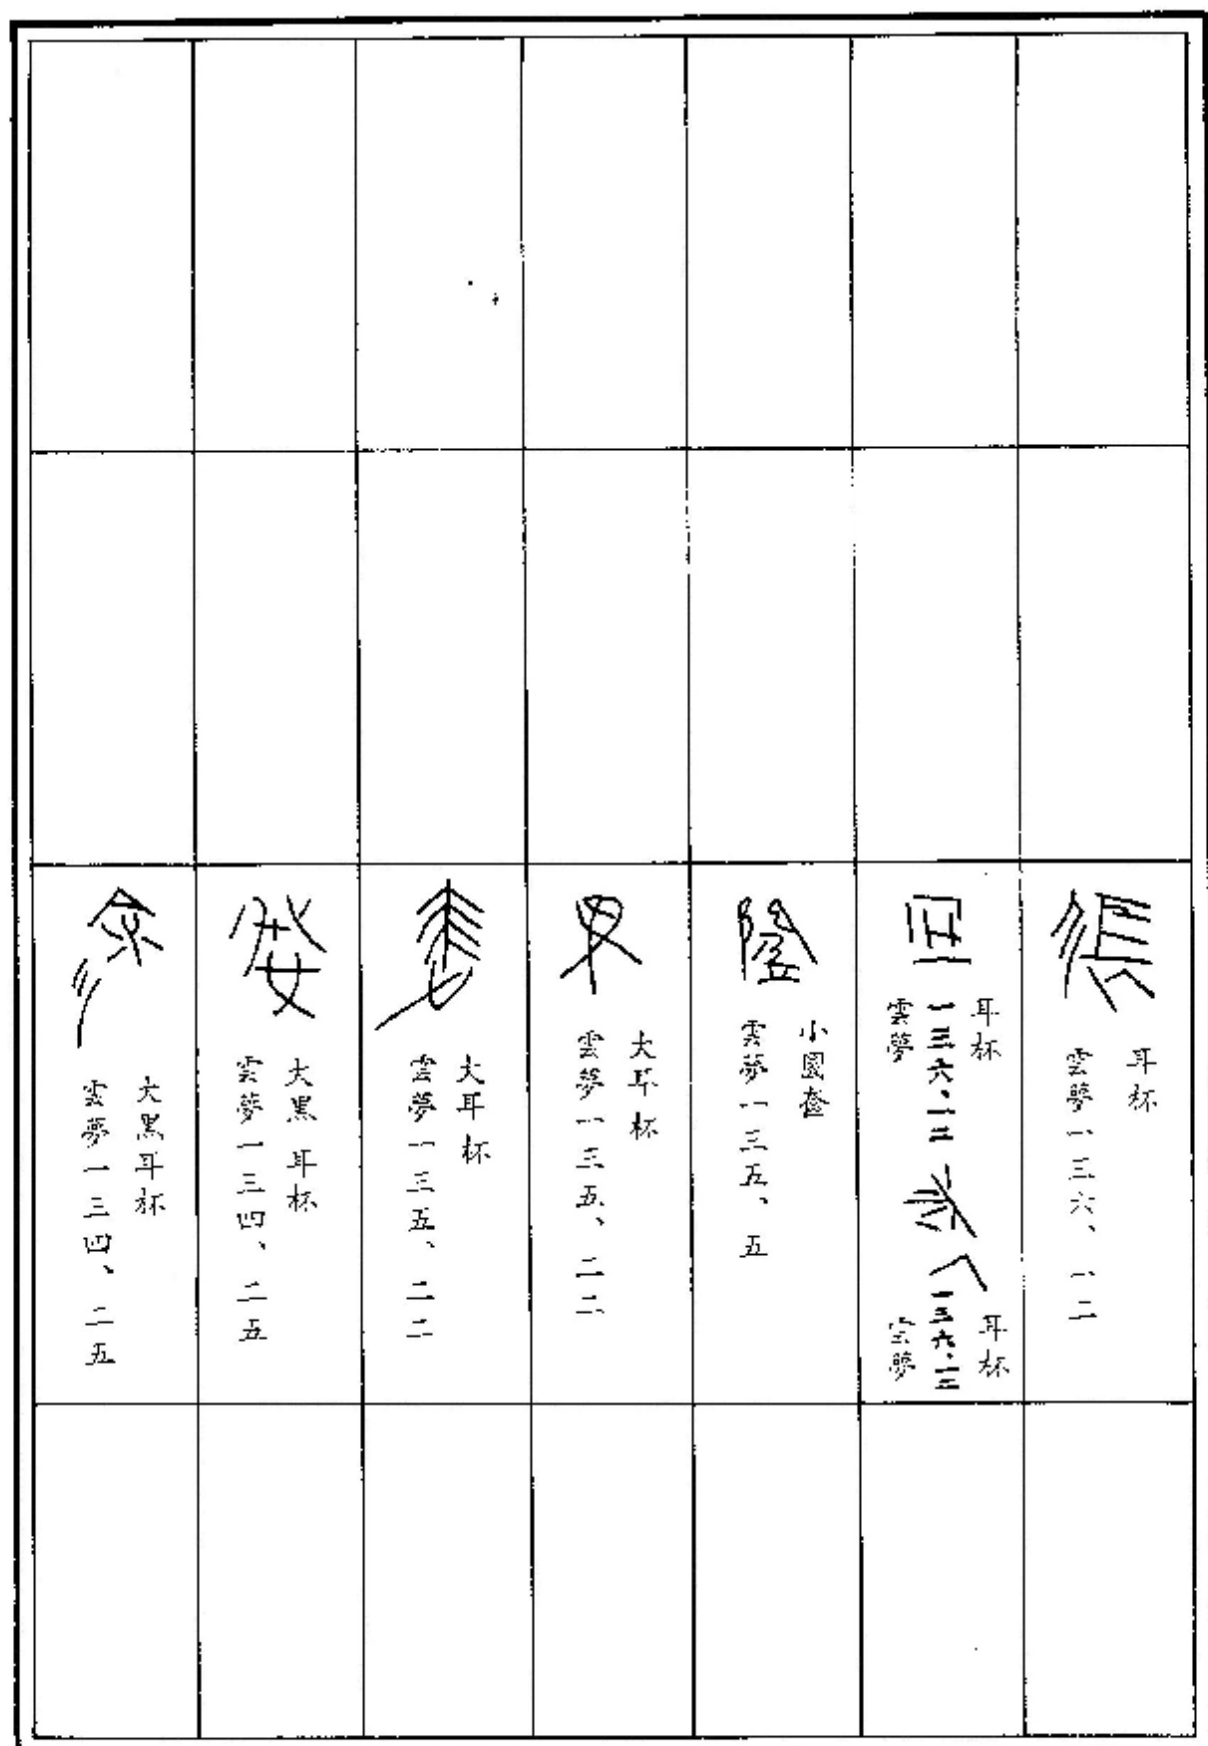 耳杯
雲夢一三六、一二
耳杯
一三六·一二
雲夢
耳杯
一三六·一二
雲夢
小圆奩
雲夢一三五、五
大耳杯
雲夢一三五、二二
大耳杯
雲夢一三五、二二
大黑耳杯
雲夢一三四、二五
大黑耳杯
雲夢一三四、二五